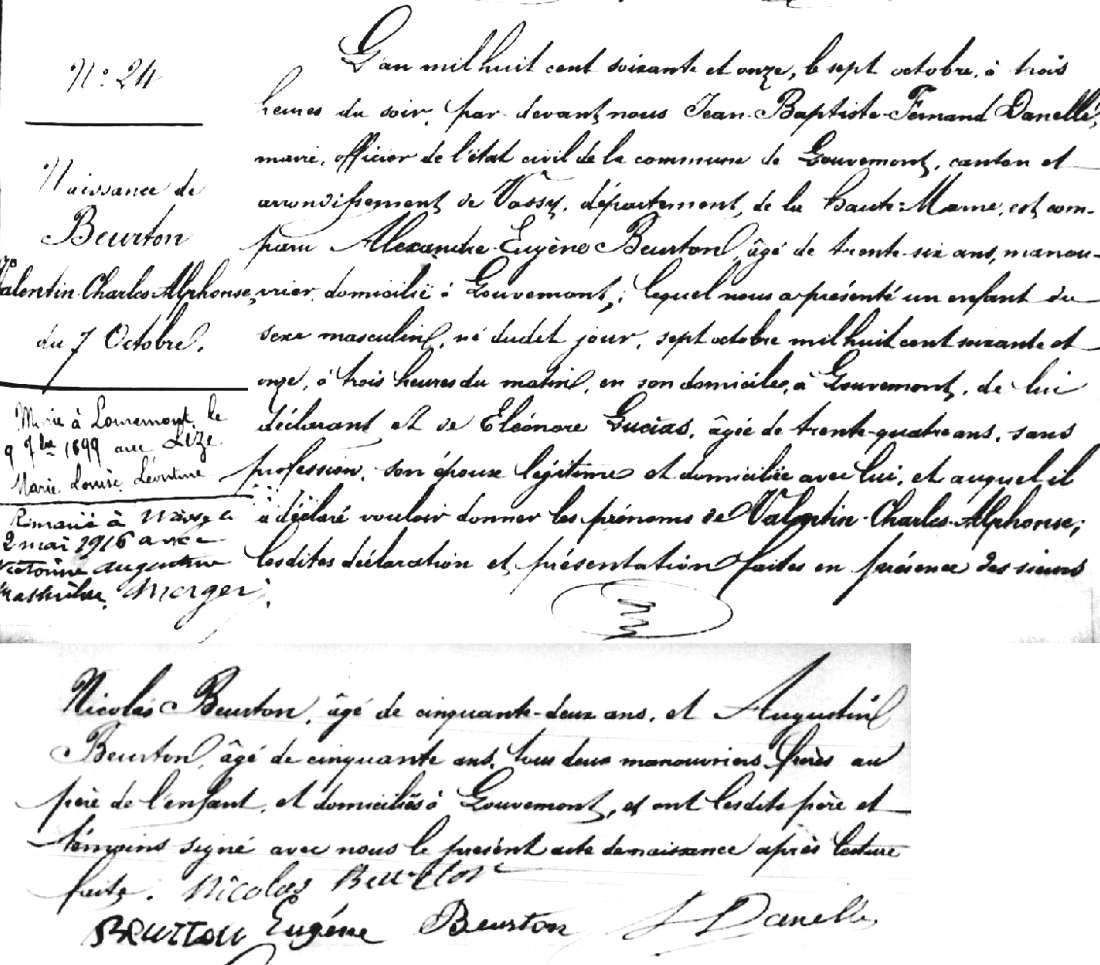 N° 24
Naissance de
Beurton
Valentin-Charles-Alphonse,
du 7 Octobre.
Marié à Louvemont, le
9 9bre 1899 avec Lize
Marie Louise Léontine
Remarié à Wassy le
2 mai 1916 avec
Victorine Augustine
Merger
L'an mil huit cent soixante et onze, le sept octobre, à trois
heures du soir, par devant nous Jean-Baptiste-Fernand Danelle,
maire, officier de l'état civil de la commune de Louvemont, canton et
arrondissement de Vassy, département de la Haute-Marne, est com-
paru Alexandre-Eugène Beurton, âgé de trente-six ans, manou-
vrier, domicilié à Louvemont; lequel nous a présenté un enfant du
sexe masculin, né dudit jour, sept octobre mil huit cent soixante et
onze, à trois heures du matin, en son domicile, à Louvemont, de lui
déclarant et de Eléonore Gucias, âgée de trente-quatre ans, sans
profession, son épouse légitime et domiciliée avec lui, et auquel il
a déclaré vouloir donner les prénoms de Valentin-Charles-Alphonse;
lesdites déclaration et présentation faites en présence des sieurs
Nicolas Beurton, âgé de cinquante-deux ans, et Augustin
Beurton, âgé de cinquante ans, tous deux manouvriers, frères au
père de l'enfant, et domiciliés à Louvemont, et ont lesdits père et
témoins signé avec nous le présent acte de naissance après lecture
faite. Nicolas Beurton
Beurton Eugéne Beurton F Danelle